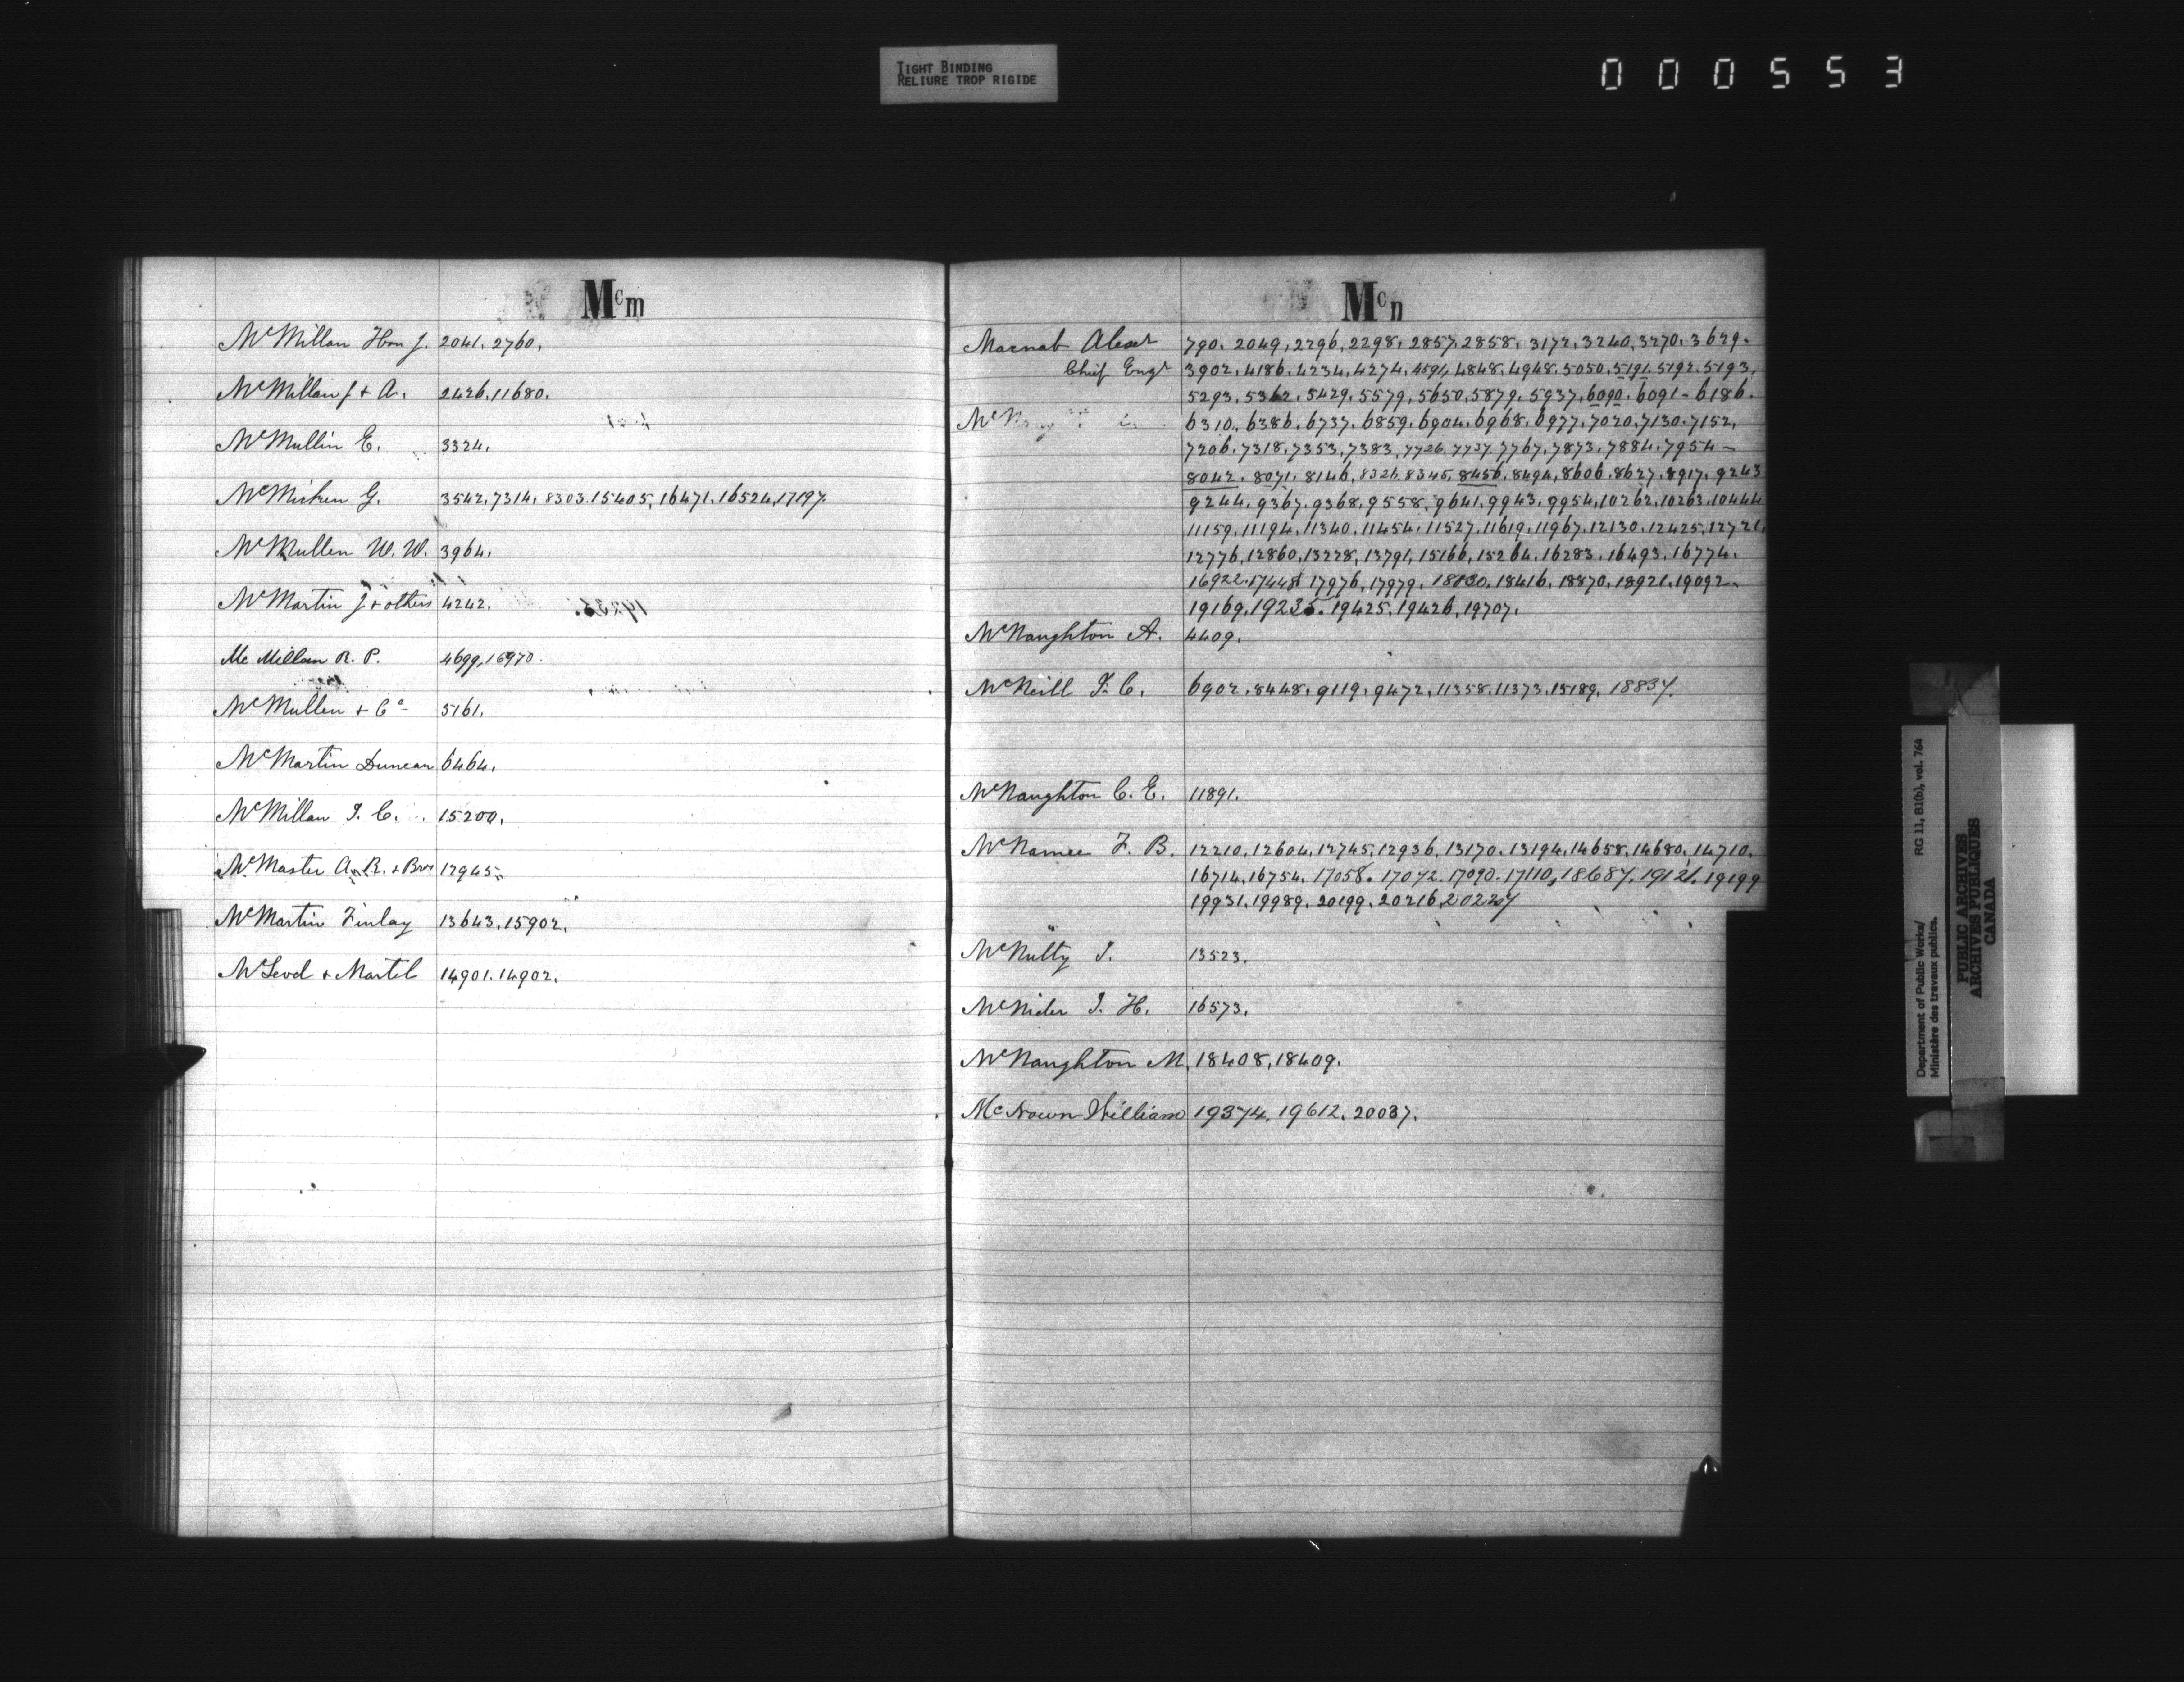 TIGHT BINDING
RELIURE TROP RIGIDE
000553
Mcm
McMillan Hon J. 2041, 2760,
McMillan J & A. 2426, 11680.
McMullin E. 3324,
McMicken G. 3542, 7314, 8303, 15405, 16471, 16524, 17197.
McMullen W. W. 3964.
McMartin J & others 4242.
Mc Millan R. P. 4699, 16970.
McMullen & Co 5161.
McMartin Duncan 6464.
McMillan J. C. 15200,
McMaster A. R. & Bros 12945
McMartin Finlay 13643, 15902,
McLeod & Martel 14901. 14902.
Mcn
Macnab Alexr 790. 2049, 2296, 2298, 2857, 2858, 3172, 3240, 3270, 3629.
Chief Engr 3902, 4186, 4234, 4274, 4591, 4848, 4948, 5050, 5191, 5192, 5193,
5293, 5362, 5429, 5579, 5650, 5879, 5937, 6090, 6091 - 6186.
6310, 6386, 6737, 6859, 6904, 6968, 6977, 7020, 7130, 7152,
7206, 7318, 7353, 7383, 7726, 7737, 7767, 7873, 7884, 7954 -
8042, 8071, 8146, 8326, 8345, 8456, 8494, 8606, 8627, 8917, 9243
9244, 9367, 9368, 9558, 9641, 9943, 9954, 10262, 10263, 10444
11159, 11194, 11340, 11454, 11527, 11619, 11967, 12130, 12425, 12721,
12776, 12860, 13228, 13791, 15166, 15264, 16283, 16493, 16774.
16922, 17448, 17976, 17979, 18130, 18416, 18870, 18921, 19092 -
19169, 19235, 19425, 19426, 19707.
McNaughton A. 4409.
McNeill J. C. 6902, 8448, 9119, 9472, 11358, 11373, 15189, 18837.
McNaughton C. E. 11891.
McNamee F. B. 12210, 12604, 12745, 12936, 13170, 13194, 14658, 14680, 14710,
16714, 16754, 17058. 17072. 17090. 17110, 18687, 19121, 19199
19931, 19989, 20199, 20216, 20227
McNulty J. 13523.
McNider J. H. 16573,
McNaughton M. 18408, 18409.
McNown William 19374, 19612, 20037.
Department of Public Works/ RG 11, B1(b), vol. 764
Ministère des travaux publics.
PUBLIC ARCHIVES
ARCHIVES PUBLIQUES
CANADA